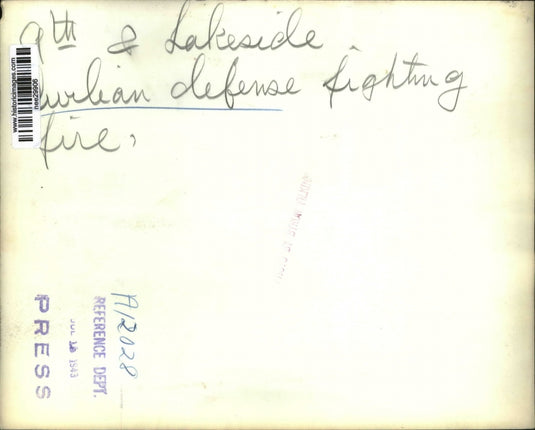 9th & Lakeside
Civilian defense fighting
fire,
www.historicimages.com
A12028
REFERENCE DEPT.
JUL 1943
PRESS